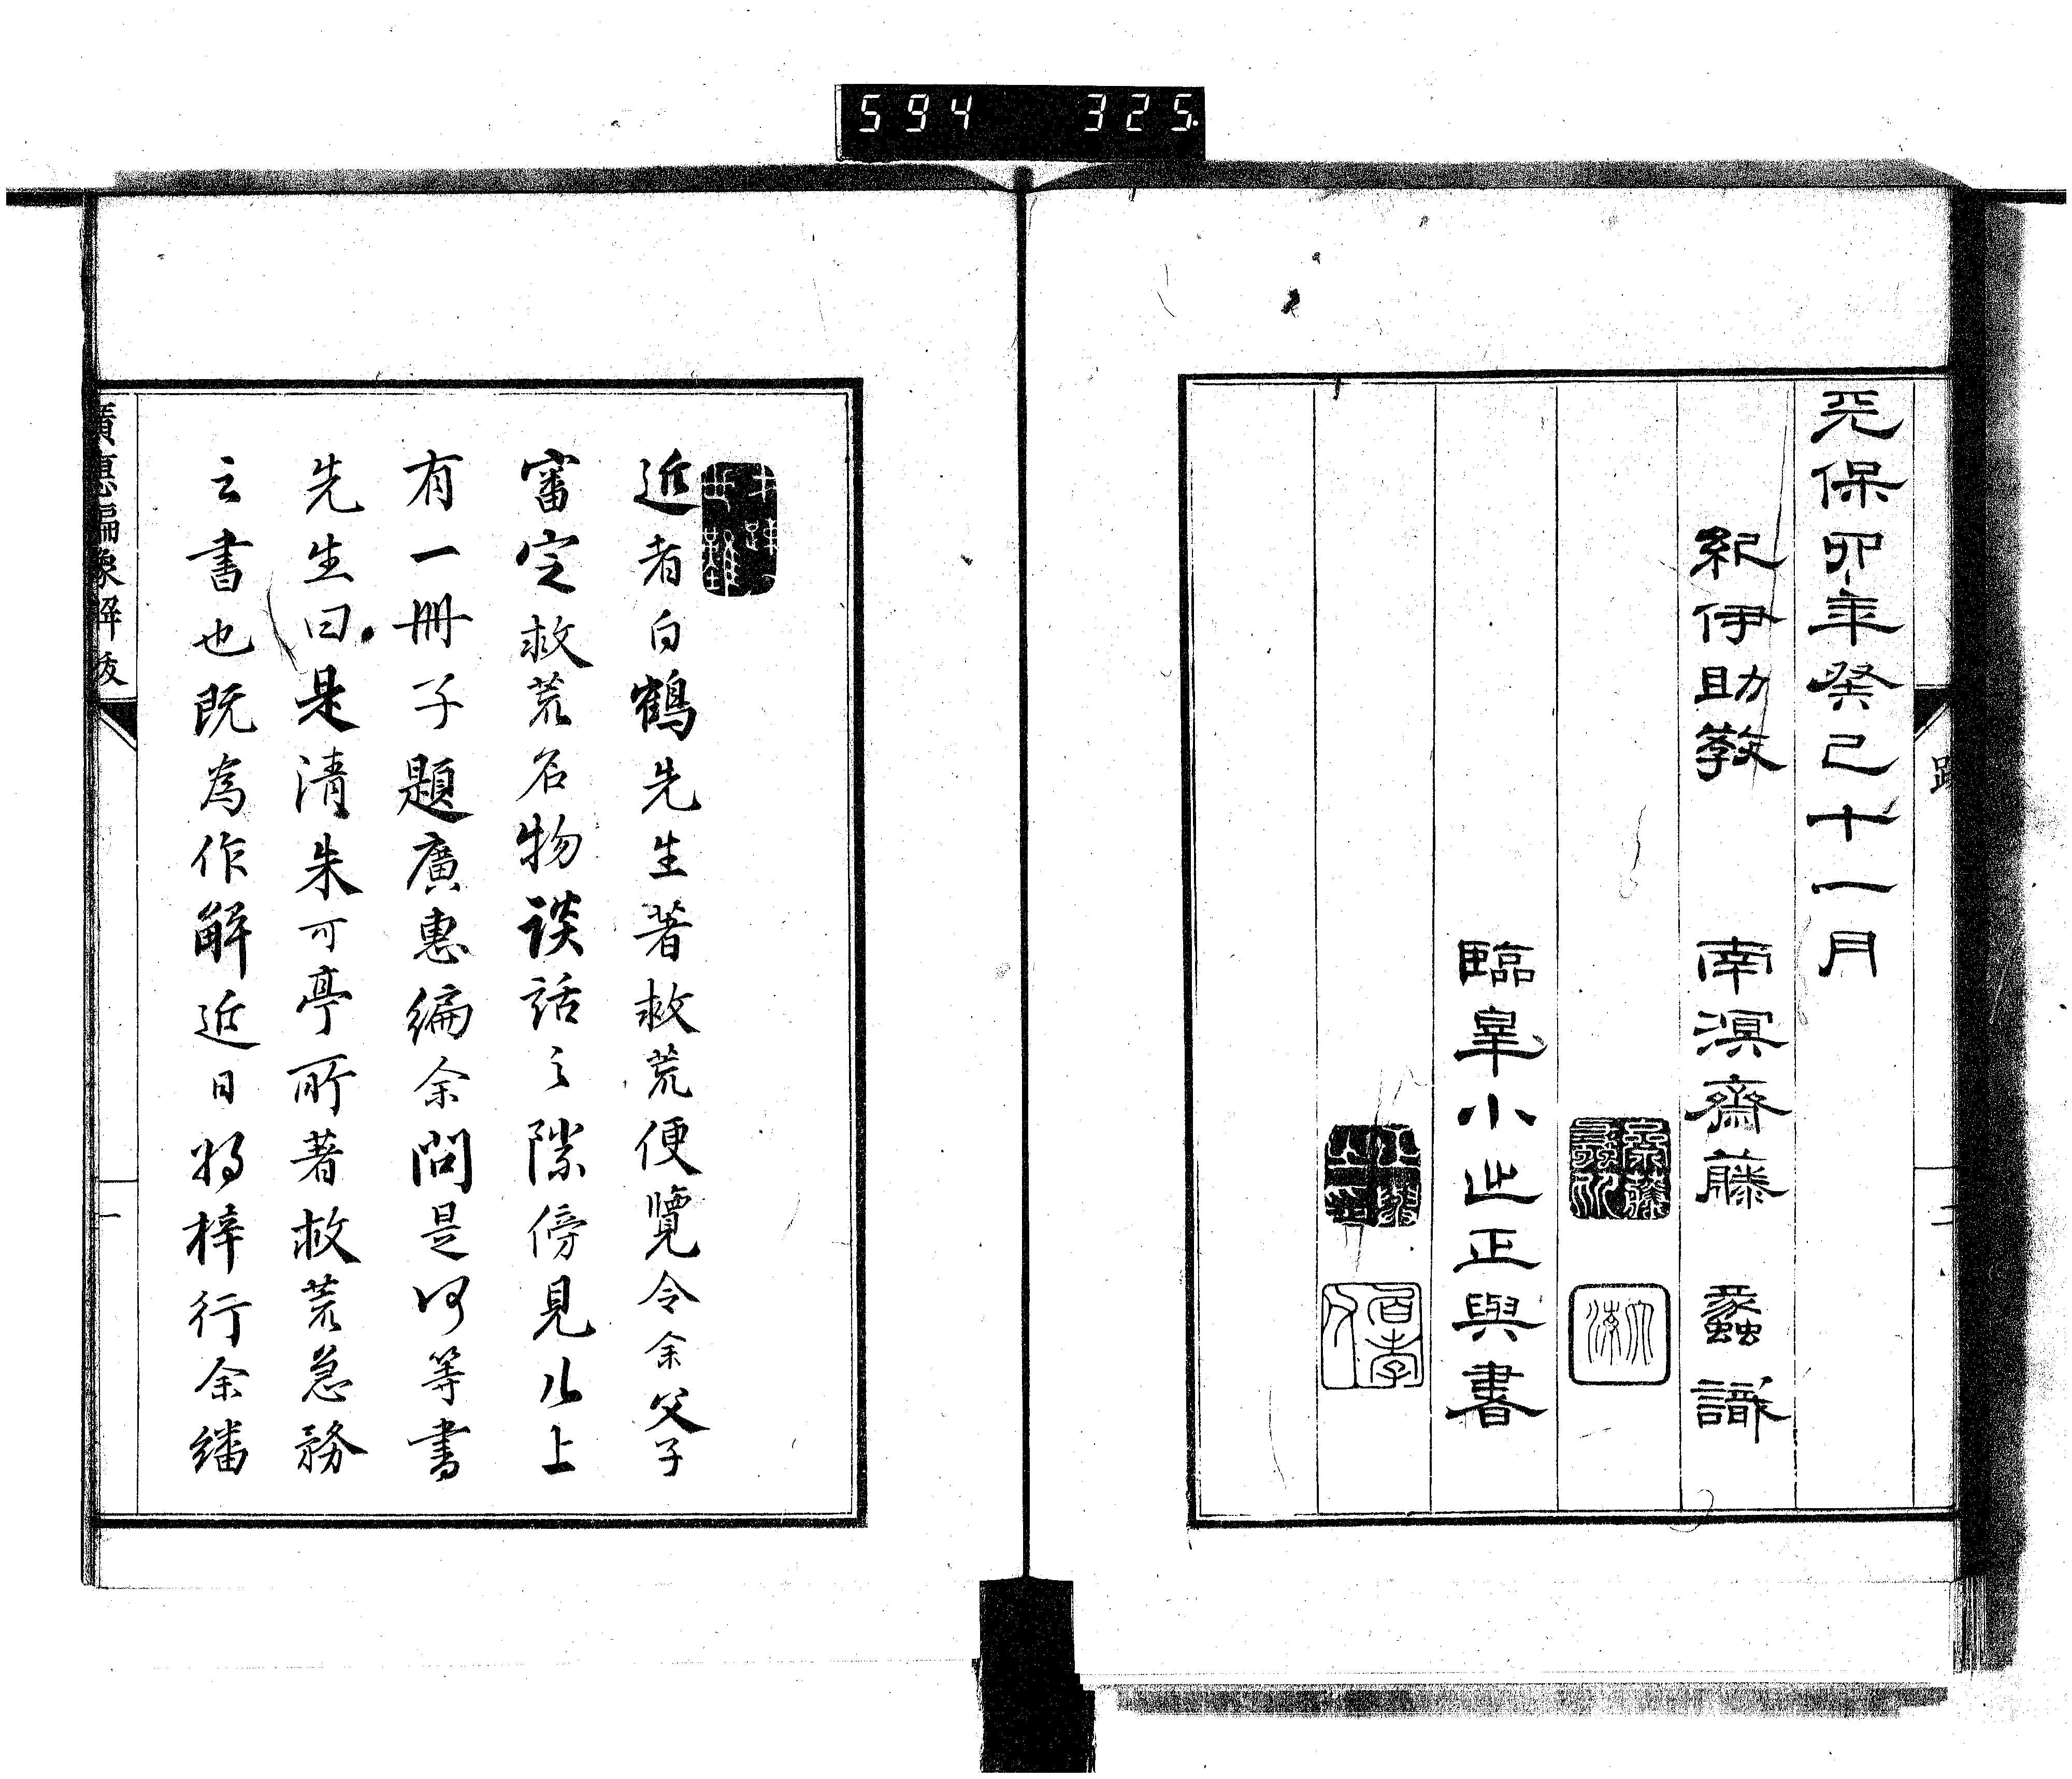 594 325
跋
二
天保四年癸巳十一月
紀伊助教 南溟齋藤 蠡識
臨皐小正興書
近者白鶴先生著救荒便覽令余父子
審定救荒名物談話之隙傍見几上
有一冊子題廣惠編余問是何等書
先生曰是清朱可亭所著救荒急務
之書也既為作解近日將梓行余繙
廣惠編解跋
一